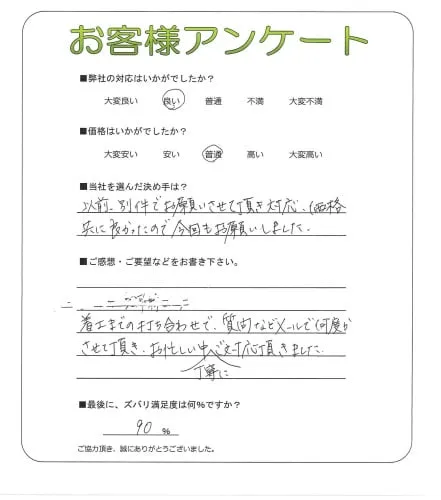 お客様アンケート
■弊社の対応はいかがでしたか？
大変良い 良い 普通 不満 大変不満
■価格はいかがでしたか？
大変安い 安い 普通 高い 大変高い
■当社を選んだ決め手は？
以前、別件でお願いさせて頂き対応、価格
共に良かったので今回もお願いしました。
■ご感想・ご要望などをお書き下さい。
着工までの打ち合わせで、質問などメールで何度か
させて頂き、お忙しい中ご対応頂きました。
丁寧に
■最後に、ズバリ満足度は何％ですか？
90 %
ご協力頂き、誠にありがとうございました。